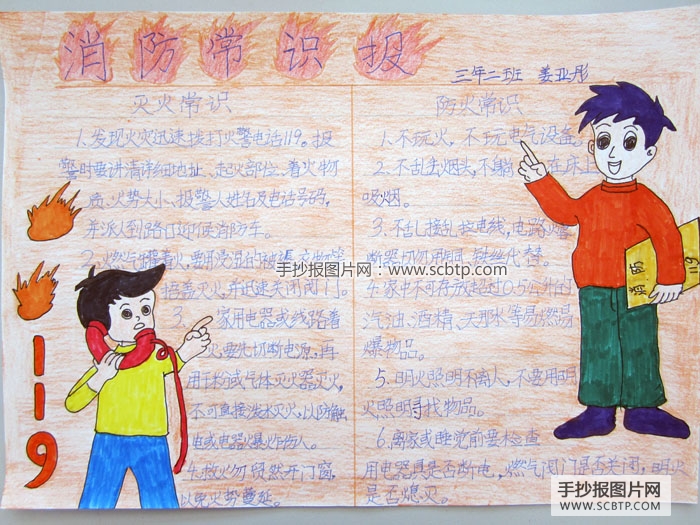 消防常识报
三年二班 姜亚彤
灭火常识
1.发现火灾迅速拨打火警电话119。报
警时要讲清详细地址、起火部位、着火物
质、火势大小、报警人姓名及电话号码,
并派人到路口迎候消防车。
2.燃气
捂盖灭火,并迅速关闭阀门。
3.家用电器或线路着
火,要先切断电源,再
用干粉或气体灭火器灭火,
不可直接泼水灭火,以防触
电或电器爆炸伤人。
4.救火勿贸然开门窗,
以免火势蔓延。
防火常识
1.不玩火,不玩电气设备。
2.不乱丢烟头,不躺在床上
吸烟。
3.不乱接乱拉电线,电路熔
断器切勿用铜、铁丝代替。
4.家中不可存放超过0.5公升的
汽油、酒精、天那水等易燃易
爆物品。
5.明火照明不离人,不要用明
火照明寻找物品。
6.离家或睡觉前要检查
用电器具是否断电,燃气阀门是否关闭,明火
是否熄灭。
119
消防
119
手抄报图片网:www.scbtp.com
手抄报图片网
WWW.SCBTP.COM